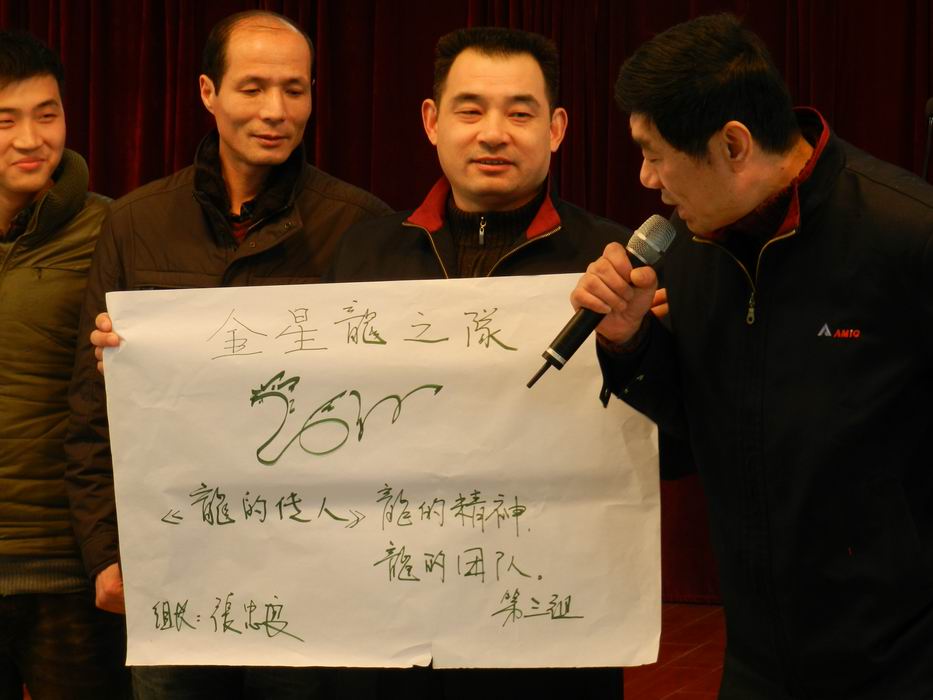 金星龍之隊
《龍的传人》 龍的精神.
龍的团队。
组长: 張忠
第三组
AMIQ